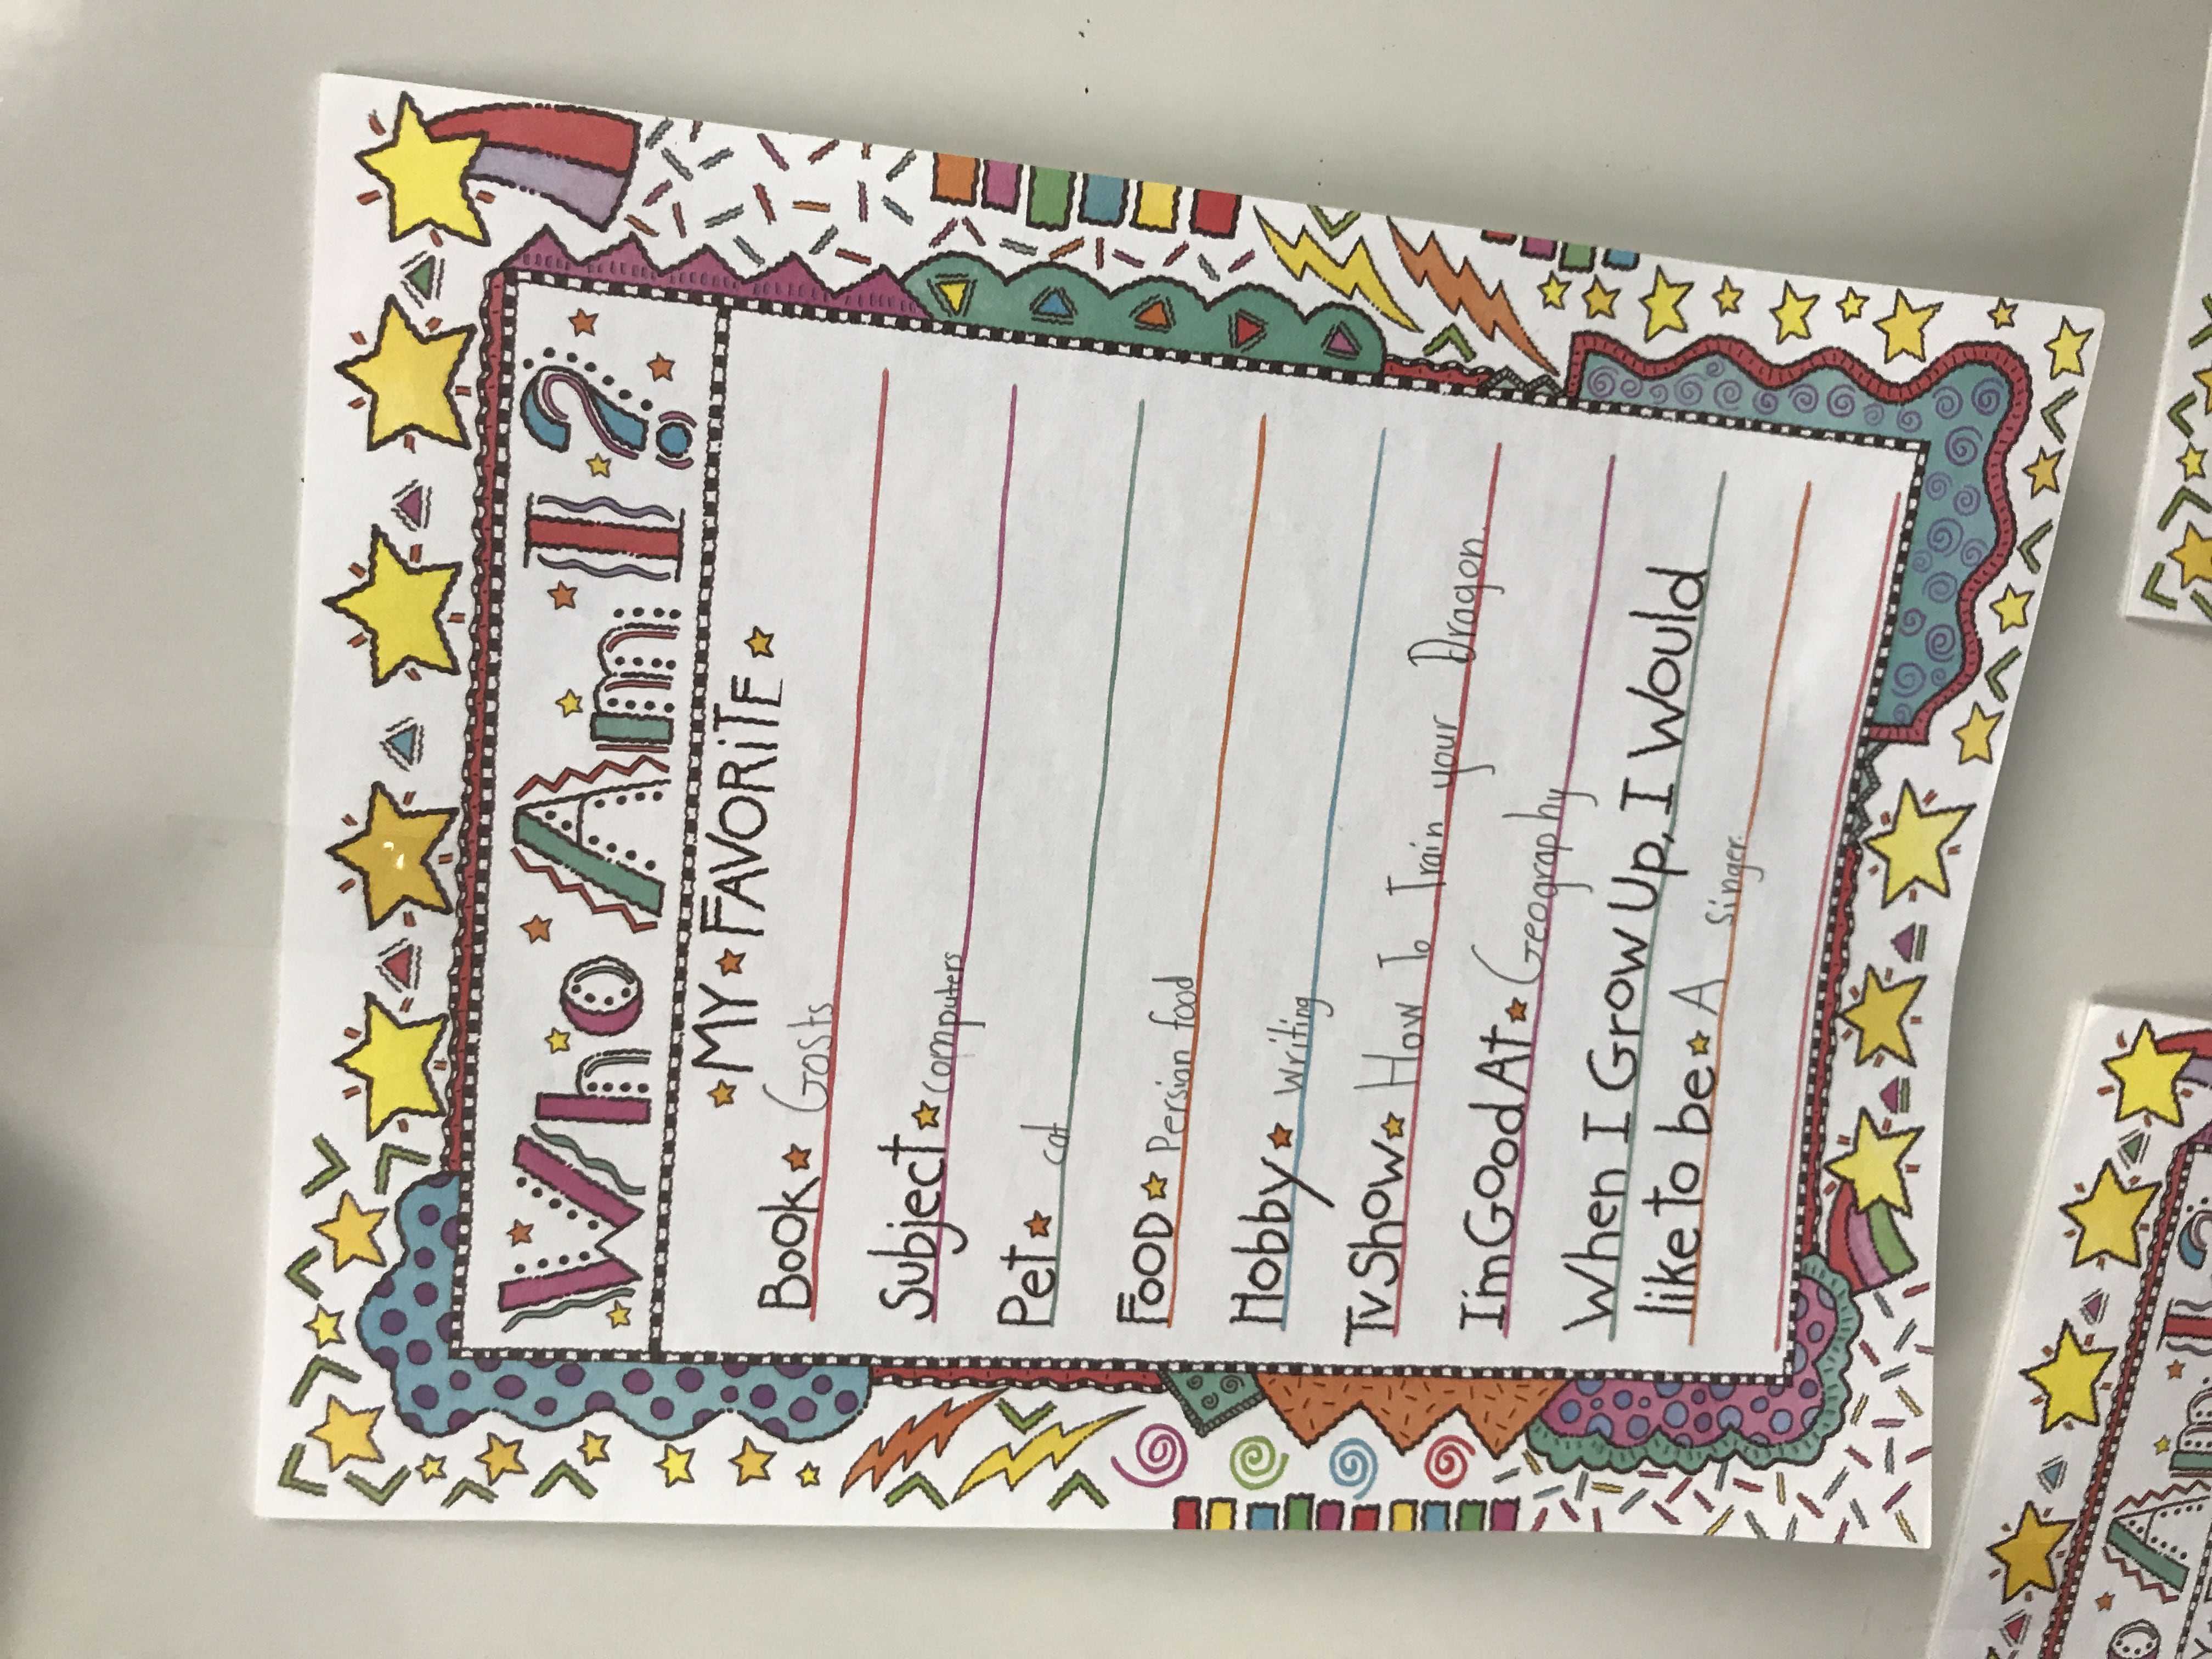 Who Am I?
MY FAVORITE
Book Gosts
Subject computers
Pet cat
Food Persian food
Hobby writing
Tv Show How To Train your Dragon.
I'm Good At Geography
When I Grow Up, I Would
like to be A singer.
Am I?